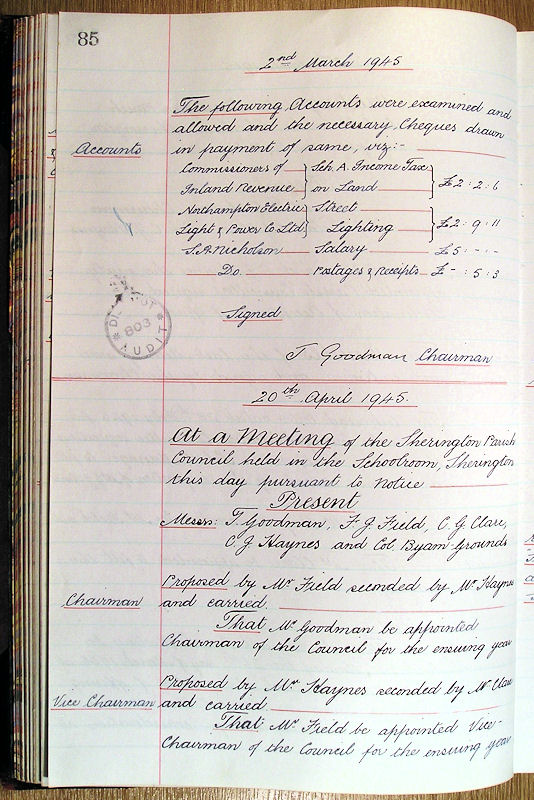 85
2nd March 1945
The following Accounts were examined and
allowed and the necessary Cheques drawn
Accounts in payment of same, viz:-
Commissioners of } Sch. A. Income Tax }
Inland Revenue } on Land } £2 : 2 : 6
Northampton Electric } Street }
Light & Power Co Ltd } Lighting } £2 : 9 : 11
S.A. Nicholson Salary £5 : - . -
Do. Postages & Receipts £- : 5 : 3
Signed
803
AUDIT
T Goodman Chairman
20th April 1945.
At a Meeting of the Sherington Parish
Council held in the Schoolroom, Sherington
this day pursuant to Notice
Present
Messrs: T. Goodman, F J Field, C. G. Clare,
C J Haynes and Col. Byam-Grounds
Proposed by Mr Field seconded by Mr Haynes
Chairman and carried.
That Mr Goodman be appointed
Chairman of the Council for the ensuing year
Proposed by Mr Haynes seconded by Mr Clare
Vice Chairman and carried.
That Mr Field be appointed Vice-
Chairman of the Council for the ensuing year